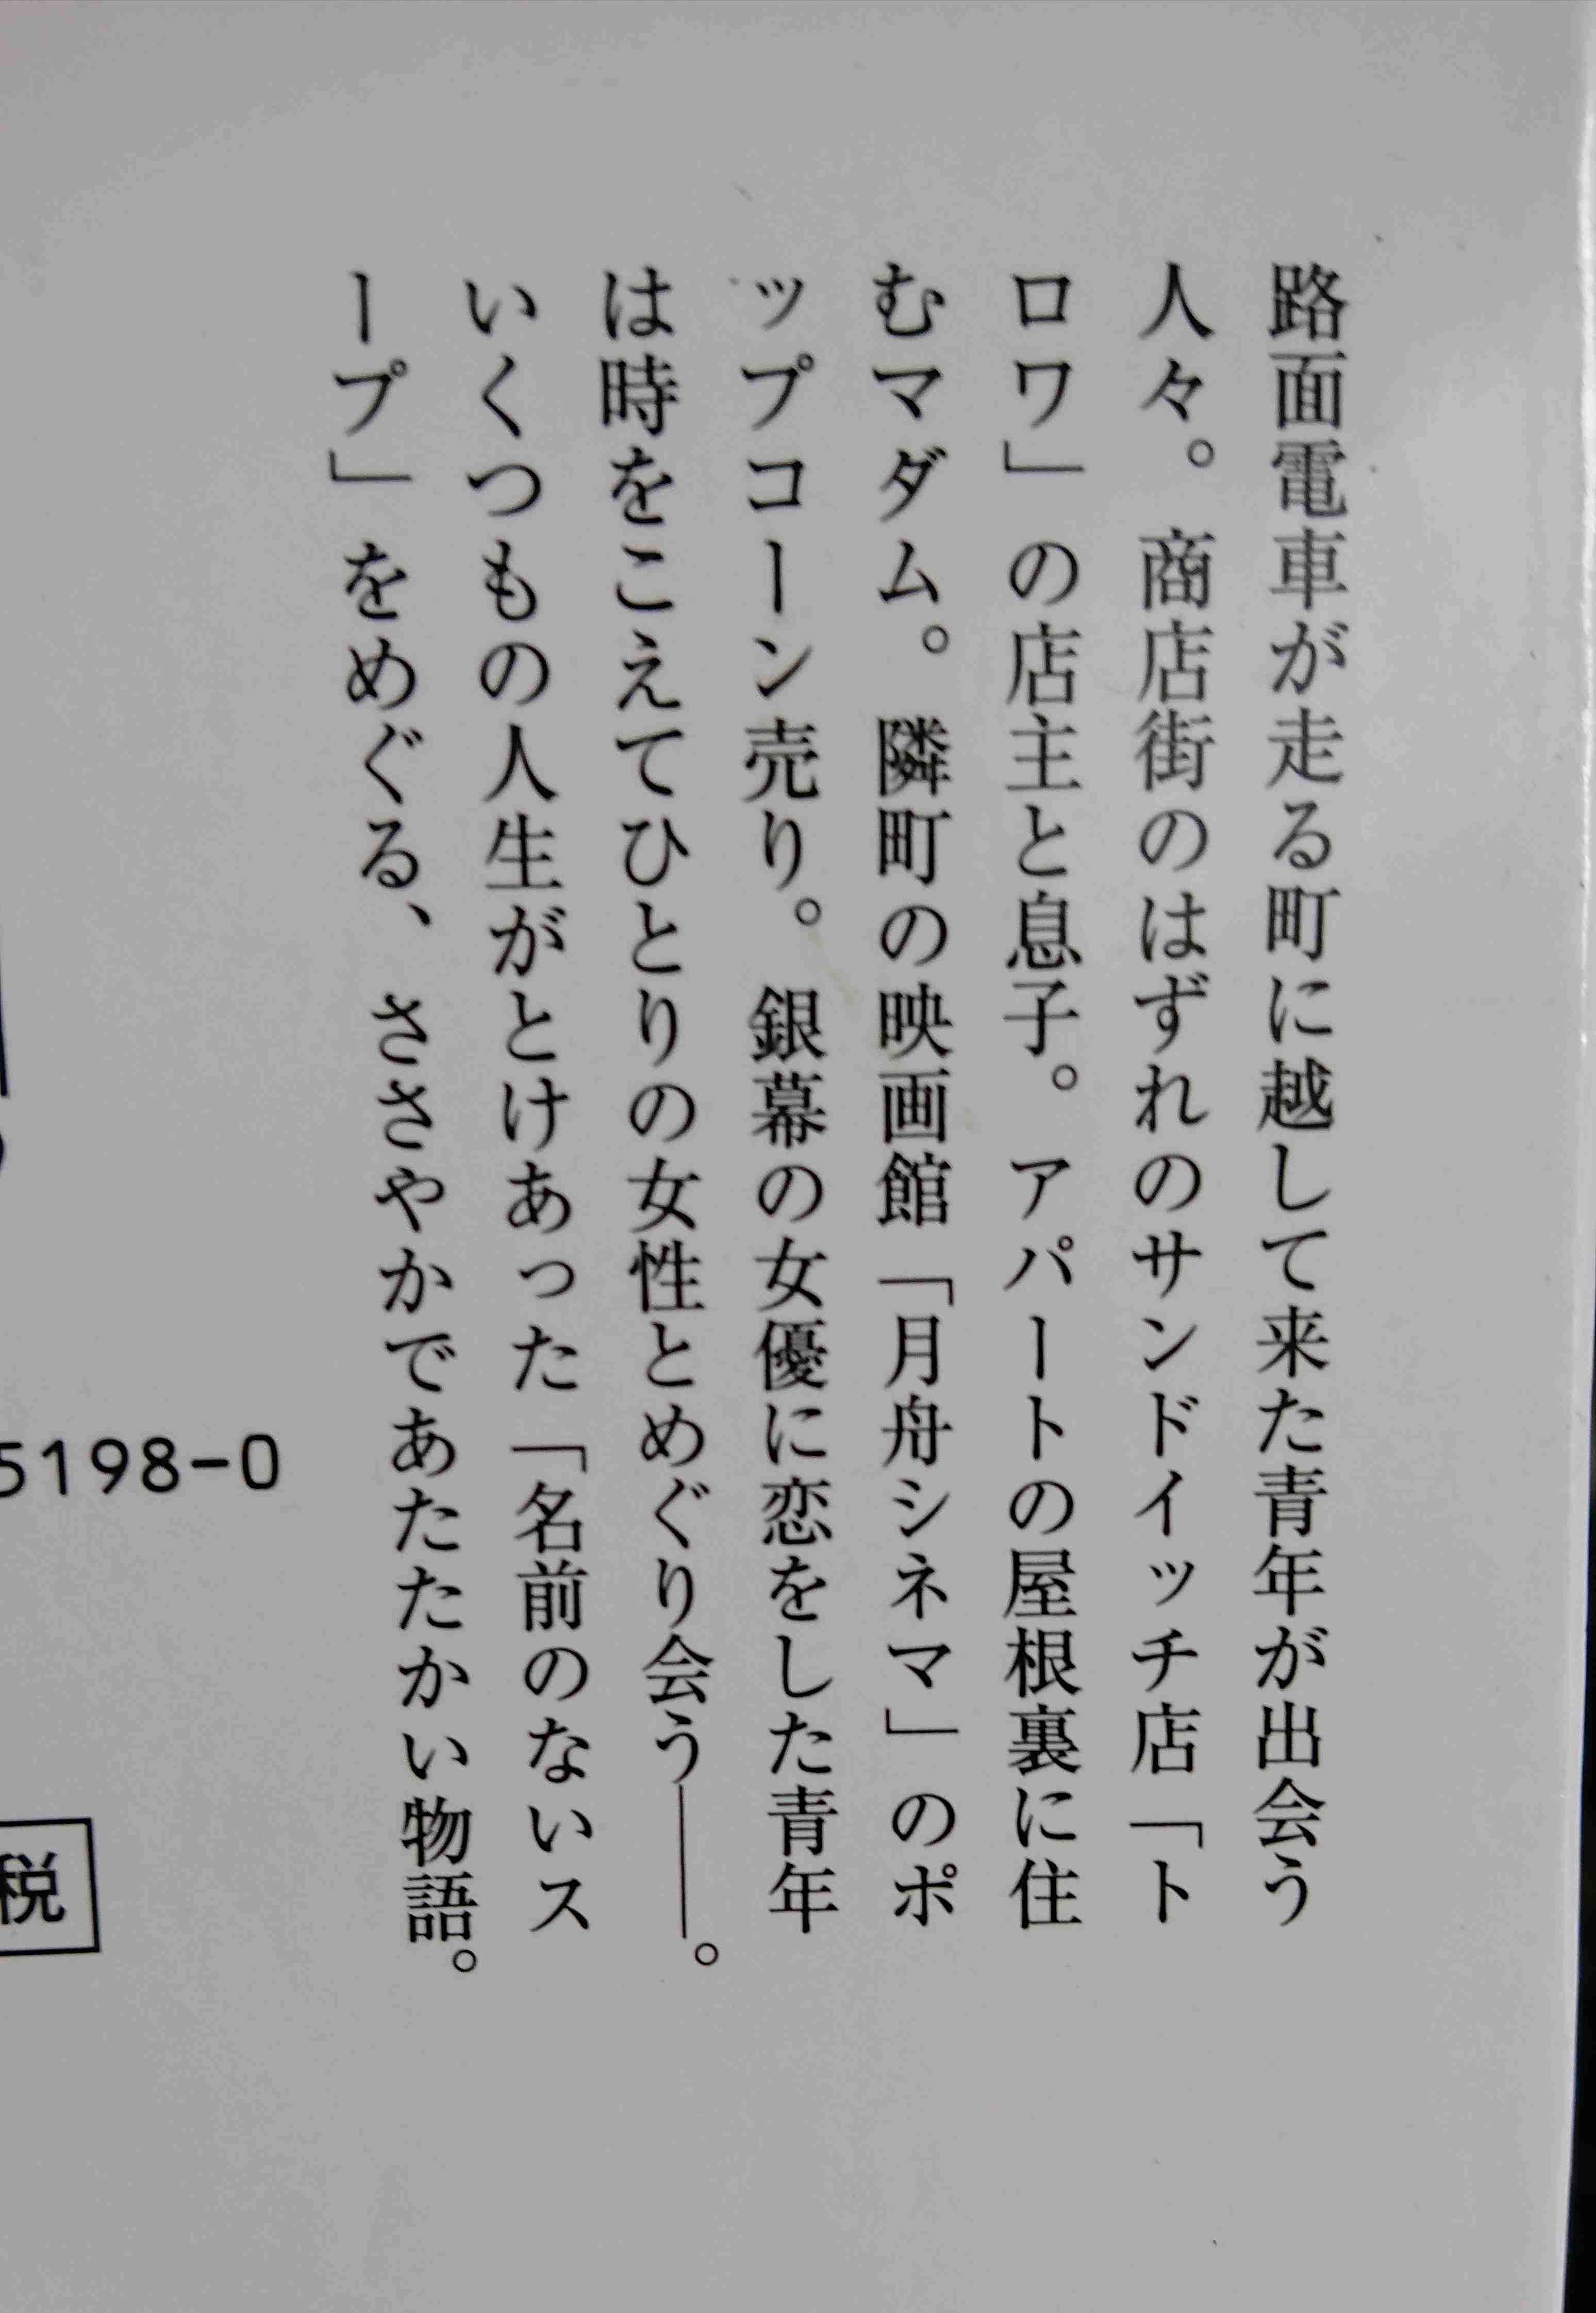 路面電車が走る町に越して来た青年が出会う
人々。商店街のはずれのサンドイッチ店「ト
ロワ」の店主と息子。アパートの屋根裏に住
むマダム。隣町の映画館「月舟シネマ」のポ
ップコーン売り。銀幕の女優に恋をした青年
は時をこえてひとりの女性とめぐり会う――。
いくつもの人生がとけあった「名前のないス
ープ」をめぐる、ささやかであたたかい物語。
5198-0
税